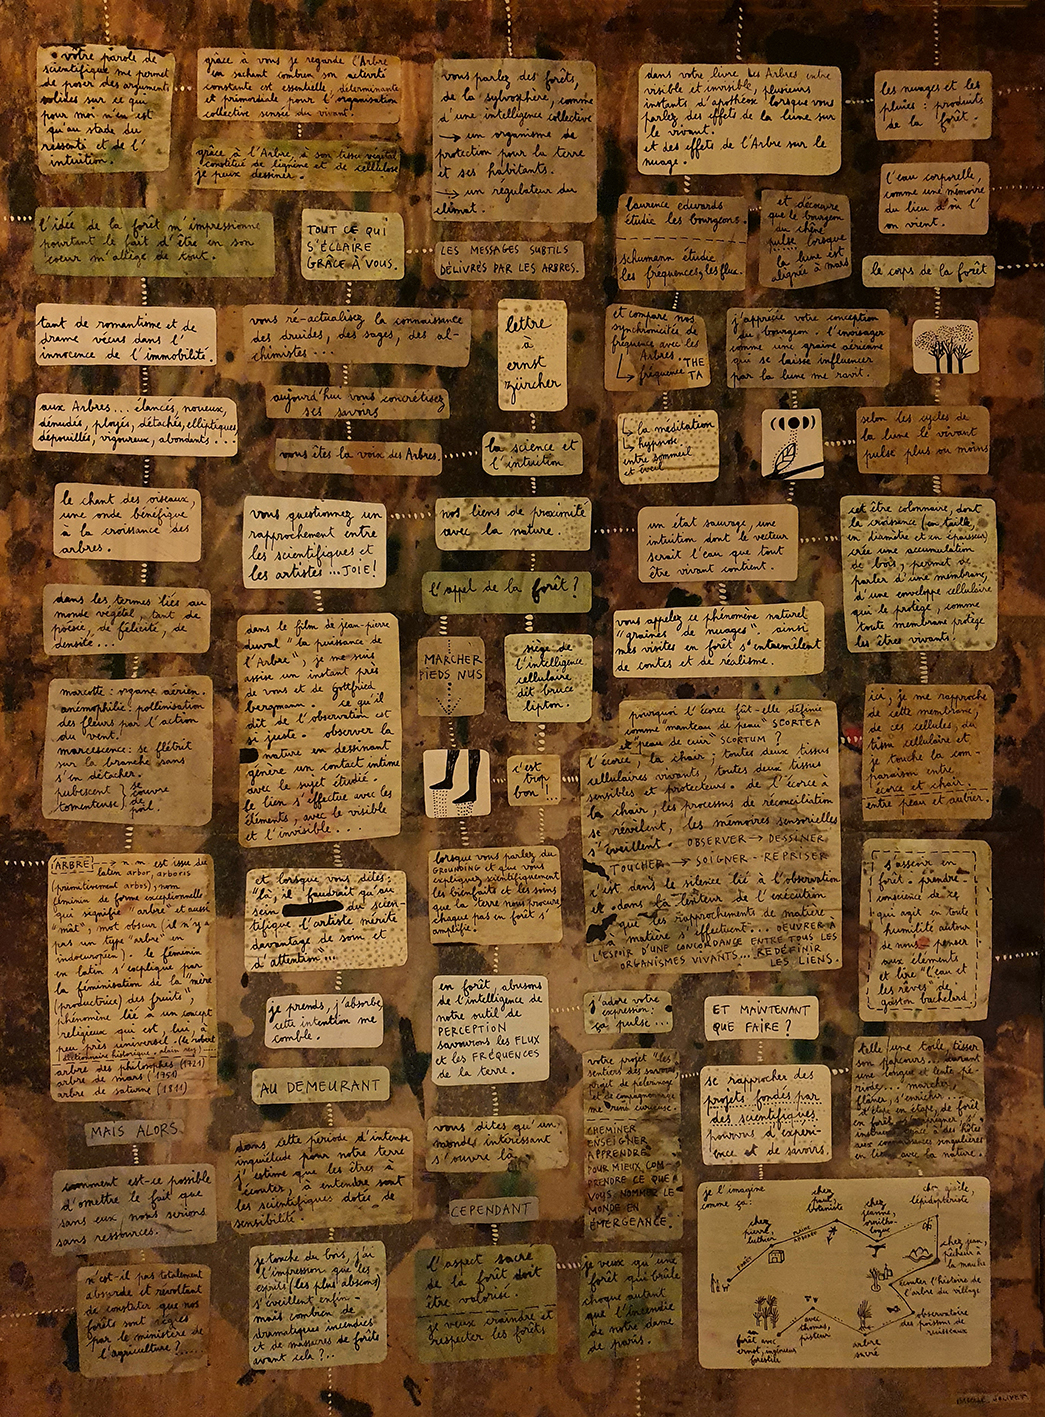 • vôtre parole de
scientifique me permet
de poser des arguments
solides sur ce qui
pour moi n'en est
qu'au stade du
ressenti et de l'
intuition.
grâce à vous je regarde l'Arbre
en sachant combien son activité
constante est essentielle, déterminante
et primordiale pour l'organisation
collective sensée du vivant.
grâce à l'Arbre, à son tissu végétal
constitué de lignine et de cellulose
je peux dessiner.
vous parlez des forêts,
de la sylvosphère, comme
d'une intelligence collective
→ un organisme de
protection pour la terre
et ses habitants.
→ un régulateur du
climat.
dans votre livre Les Arbres entre
visible et invisible, plusieurs
instants d'apothéose lorsque vous
parlez des effets de la lune sur
le vivant.
et des effets de l'Arbre sur le
nuage.
les nuages et les
pluies : produits
de la forêt.
l'eau corporelle,
comme une mémoire
du lieu d'où l'
on vient.
l'idée de la forêt m'impressionne
pourtant le fait d'être en son
coeur m'allège de tout.
TOUT CE QUI
S'ÉCLAIRE
GRÂCE À VOUS.
LES MESSAGES SUBTILS
DÉLIVRÉS PAR LES ARBRES.
laurence edwards
étudie les bourgeons.
schumann étudie
les fréquences, les flux.
et découvre
que le bourgeon
du chêne
pulse lorsque
la lune est
alignée à mars
le corps de la forêt
tant de romantisme et de
drame vécus dans l'
innocence de l'immobilité.
vous ré-actualisez la connaissance
des druides, des sages, des al-
chimistes...
lettre
à
ernst
zürcher
et compare nos
synchronicités de
fréquence avec les
Arbres
↳ fréquence "THE
TA
j'apprécie votre conception
du bourgeon. l'envisager
comme une graine aérienne
qui se laisse influencer
par la lune me ravit.
aux Arbres... élancés, noueux,
dénudés, ployés, détachés, elliptiques
dépouillés, vigoureux, abondants...
aujourd'hui vous concrétisez
ses savoirs
vous êtes la voix des Arbres.
la science et
l'intuition.
↳ la méditation
↳ hypnose
entre sommeil
et éveil
selon les cycles de
la lune le vivant
pulse plus ou moins
le chant des oiseaux,
une onde bénéfique
à la croissance des
arbres.
vous questionnez un
rapprochement entre
les scientifiques et
les artistes... JOIE!
nos liens de proximité
avec la nature.
un état sauvage, une
intuition dont le vecteur
serait l'eau que tout
être vivant contient.
cet être colonnaire, dont
la croissance (en taille,
en diamètre et en épaisseur)
crée une accumulation
de bois, permet de
parler d'une membrane,
d'une enveloppe cellulaire
qui le protège, comme
toute membrane protège
les êtres vivants.
dans les termes liés au
monde végétal, tant de
poésie, de félicité, de
densité...
l'appel de la forêt ?
dans le film de jean-pierre
duval "la puissance de
l'Arbre", je me suis
assise un instant près
de vous et de Gottfried
bergmann. ce qu'il
dit de l'observation est
si juste. observer la
nature en dessinant
génère un contact intime
avec le sujet étudié.
le lien s'effectue avec les
éléments, avec le visible
et l'invisible...
MARCHER
PIEDS NUS
siège de
l'intelligence
cellulaire
dit bruce
lipton.
vous appelez ce phénomène naturel
"graines de nuages". ainsi
mes visites en forêt s'entremêlent
de contes et de réalisme.
marcotte : organe aérien.
anémophilie : pollinisation
des fleurs par l'action
du vent.
marcescence : se flétrit
sur la branche sans
s'en détacher.
pubescent } se couvre
tomenteuse } de poil.
c'est
trop
bon !
pourquoi l'écorce fût-elle définie
comme "manteau de peau" SCORTEA
et "peau de cuir" SCORTUM ?
l'écorce, la chair ; toutes deux tissus
cellulaires vivants, toutes deux tissus
sensibles et protecteurs. de l'écorce à
la chair, les processus de réconciliation
se révèlent, les mémoires sensorielles
s'éveillent. OBSERVER → DESSINER
TOUCHER → SOIGNER - REPRISER
c'est dans le silence lié à l'observation
et dans la lenteur de l'exécution
que les rapprochements de matière
à matière s'effectuent... OEUVRER À
L'ESPOIR D'UNE CONCORDANCE ENTRE TOUS LES
ORGANISMES VIVANTS... REDÉFINIR
LES LIENS.
ici, je me rapproche
de cette membrane,
de ces cellules, du
tissu cellulaire et
je touche la com-
paraison entre
écorce et chair
entre peau et aubier.
ARBRE → n m est issu du
latin arbor, arboris
(primitivement arbos), nom
féminin de forme exceptionnelle
qui signifie "arbre" et aussi
"mât", mot obscur (il n'y a
pas un type "arbre" en
indoeuropéen). le féminin
en latin s'explique par
la féminisation de la "mère
(productrice) des fruits",
phénomène lié à un concept
religieux qui est, lui, à
peu près universel. (le robert
dictionnaire historique - alain rey)
arbre des philosophes (1721)
arbre de mars (1751)
arbre de saturne (1811)
et lorsque vous dites :
"là, il faudrait qu'au
sein du scien-
tifique l'artiste mérite
davantage de soin et
d'attention"...
lorsque vous parlez du
GROUNDING et que vous
expliquez scientifiquement
les bienfaits et les soins
que la terre nous procure,
chaque pas en forêt s'
amplifie.
s'asseoir en
forêt. prendre
conscience de ce
qui agit en toute
humilité autour
de nous. penser
aux éléments
et lire "l'eau et
les rêves" de
gaston bachelard.
je prends, j'absorbe,
cette intention me
comble.
en forêt, abusons
de l'intelligence de
notre outil de
PERCEPTION
savourons les FLUX
et les FRÉQUENCES
de la terre.
j'adore votre
expression :
ça pulse...
ET MAINTENANT
QUE FAIRE ?
AU DEMEURANT
votre projet "les
sentiers des savoirs,
projet de pèlerinage
et de compagnonnage
me rend curieuse.
CHEMINER
ENSEIGNER
APPRENDRE
POUR MIEUX COM
PRENDRE CE QUE
VOUS NOMMEZ LE
MONDE EN
ÉMERGEANCE.
se rapprocher des
projets fondés par
des scientifiques
pourvus d'expéri-
ence et de savoirs.
telle une toile, tisser
son parcours... durant
une longue et lente pé-
riode... marcher,
flâner, s'enrichir...
d'étape en étape, de forêt
en forêt
aux connaissances singulières
en lien avec la nature.
MAIS ALORS
dans cette période d'intense
inquiétude pour notre terre
j'estime que les êtres à
écouter, à entendre sont
les scientifiques dotés de
sensibilité.
vous dites qu'un
monde intéressant
s'ouvre là.
comment est-ce possible
d'omettre le fait que
sans eux, nous serions
sans ressources.
CEPENDANT
n'est-il pas totalement
absurde et révoltant
de constater que nos
forêts sont régies
par le ministère de
l'agriculture ?.....
je touche du bois, j'ai
l'impression que les
esprits (les plus abscons)
s'éveillent enfin -
mais combien de
dramatiques incendies
et de massacres de forêts
avant cela ?..
l'aspect sacré
de la forêt doit
être valorisé.
je veux craindre et
respecter les forêts
je veux qu'une
forêt qui brûle
choque autant
que l'incendie
de notre dame
de paris.
je l'imagine
comme ça :
chez
pierre,
luthier
chez
paul,
botaniste
chez
jeanne,
ornitho-
logue
lépidoptériste
chez jean,
pêcheur à
la mouche
écouter l'histoire de
l'arbre du village
observatoire
des poissons de
ruisseaux
arbre
sacré
avec
thomas,
pisteur
forêt avec
ernst, ingénieur
forestier